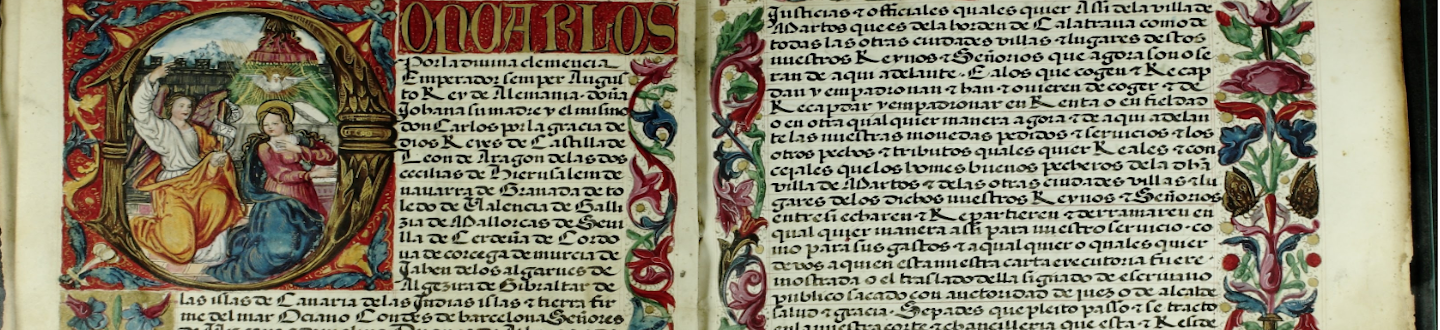 DON CARLOS
Por la divina clemencia
Emperador semper Augus
to Rey de Alemania. doña
Johana su madre y el mismo
don Carlos por la gracia de
dios Reyes de Castilla de
Leon de Aragon de las dos
cecilias de Hierusalem de
navarra de Granada de to
ledo de Valencia de Galli
zia de Mallorcas de Sevi
lla de Cerdeña de Cordo
va de corcega de murcia de
Jahen delos algarves de
Algezira de Gibraltar de
las islas de Canaria de las Indias islas & tierra fir
me del mar Oceano Condes de barcelona Señores
Justicias & officiales quales quier Assi dela villa de
Martos que es dela horden de Calatrava como de
todas las otras ciudades villas & lugares destos
nuestros Reynos & Señorios que agora son o se
ran de aqui adelante. E a los que cogen & Recap
dan y empadronan & han & ovieren de coger & de
Recaptar y empadronar en Renta o en fieldad
o en otra qual quier manera agora & de aqui adelan
te las nuestras monedas pedidos & servicios & los
otros pechos & tributos quales quier Reales & con
cejales quelos homes buenos pecheros dela dha
villa de Martos & delas otras ciudades villas & lu
gares delos dichos nuestros Reynos & Señorios
entre si echaren & Repartieren & derramaren en
qual quier manera assi para nuestro servicio. co
mo para sus gastos & a qual quier o quales quier
de vos a quien esta nuestra carta executoria fuere
mostrada o el traslado della signado de escrivano
publico sacado con auctoridad de juez o de alcalde
salud & gracia. Sepades que pleito passo & se tracto
en la nuestra corte & chancilleria que esta & Reside